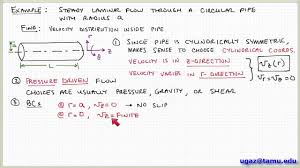 EXAMPLE: STEADY LAMINAR FLOW THROUGH A CIRCULAR PIPE
WITH RADIUS a
FIND: VELOCITY DISTRIBUTION INSIDE PIPE
① SINCE PIPE IS CYLINDRICALLY SYMMETRIC,
MAKES SENSE TO CHOOSE CYLINDRICAL COORD.
VELOCITY IS IN Z-DIRECTION
VELOCITY VARIES IN r-DIRECTION
v_z(r)
v_r = v_θ = 0
② PRESSURE DRIVEN FLOW
CHOICES ARE USUALLY PRESSURE, GRAVITY, OR SHEAR
③ BCs @ r=a, v_z=0 → NO SLIP
@ r=0, v_z=FINITE
ugaz@tamu.edu